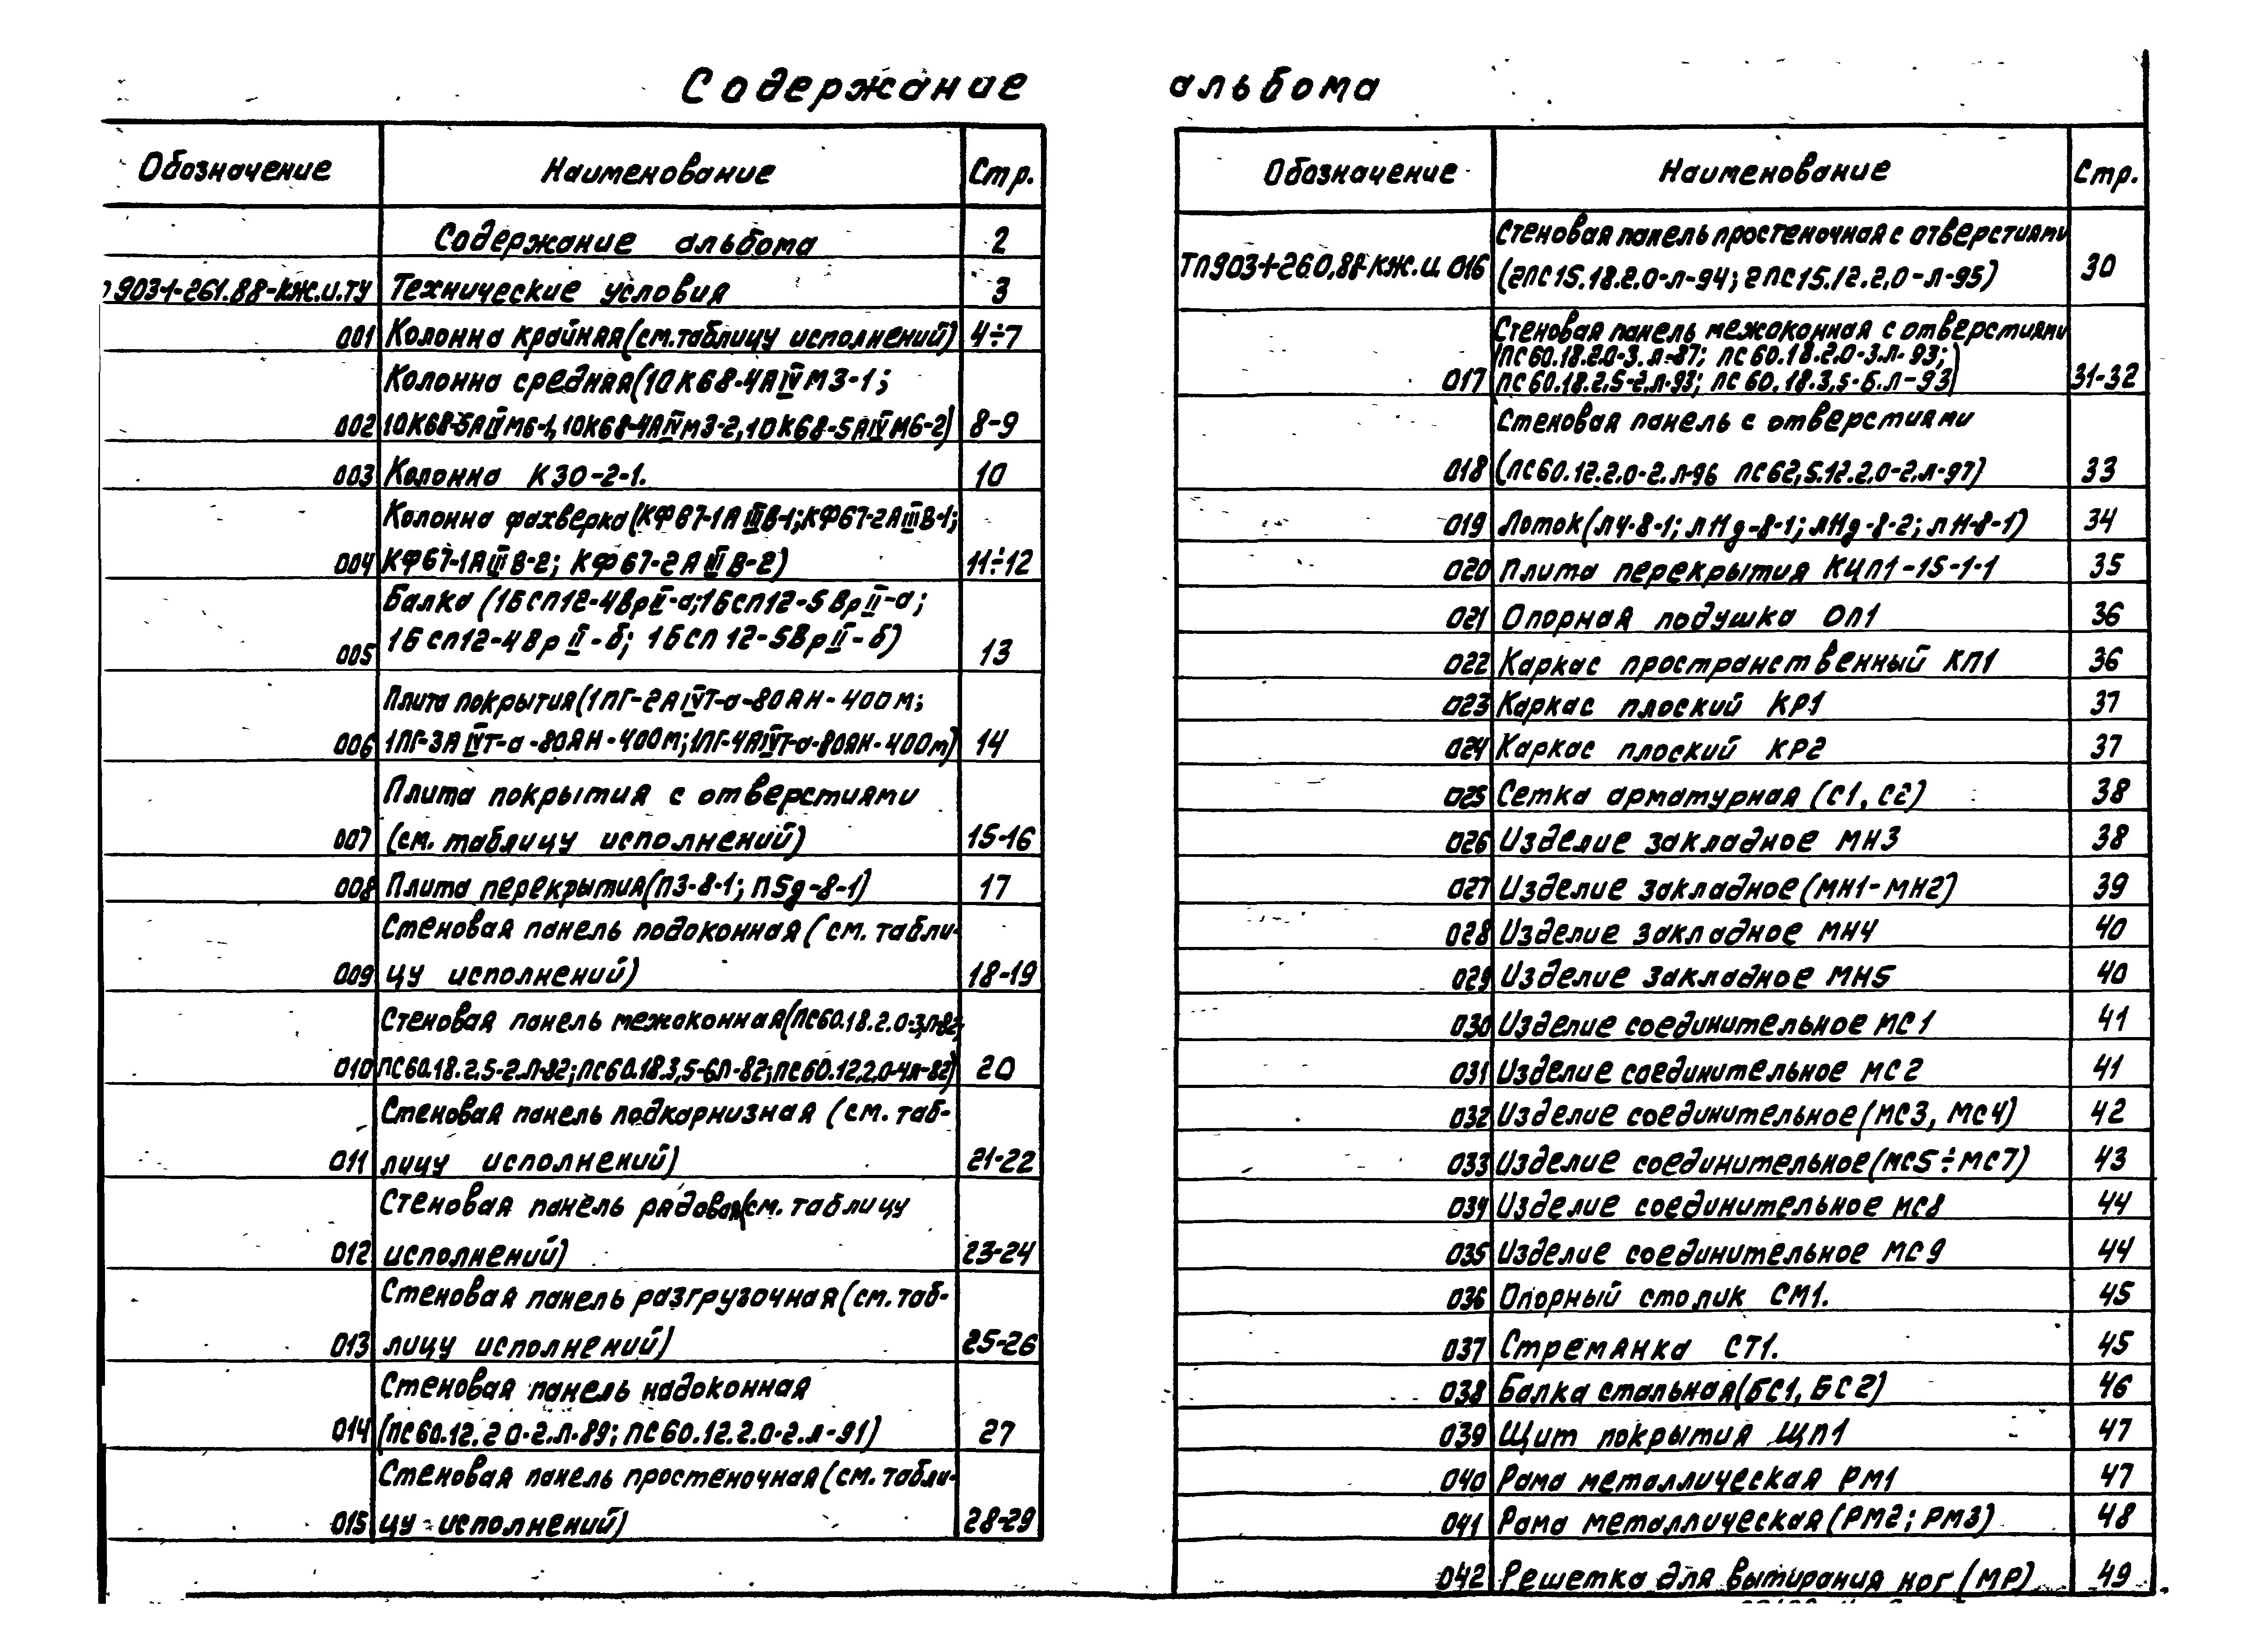 Содержание альбома
Обозначение Наименование Стр.
Содержание альбома 2
903-1-261.88-КЖ.И.ТУ Технические условия 3
001 Колонна крайняя (см. таблицу исполнений) 4÷7
Колонна средняя (10К68-4АIVМ3-1;
002 10К68-5АIVМ6-1, 10К68-4АIVМ3-2, 10К68-5АIVМ6-2) 8-9
003 Колонна К30-2-1. 10
Колонна фахверка (КФ67-1АIIIВ-1; КФ67-2АIIIВ-1;
004 КФ67-1АIIIВ-2; КФ67-2АIIIВ-2) 11÷12
Балка (1БСП12-4ВрII-а; 1БСП12-5ВрII-а;
005 1БСП12-4ВрII-б; 1БСП12-5ВрII-б) 13
Плита покрытия (1ПГ-2АIVТ-а-80АН-400м;
006 1ПГ-3АIVТ-а-80АН-400м; 1ПГ-4АIVТ-а-80АН-400м) 14
Плита покрытия с отверстиями
007 (см. таблицу исполнений) 15-16
008 Плита перекрытия (П3-8-1; П5д-8-1) 17
Стеновая панель подоконная (см. табли-
009 цу исполнений) 18-19
Стеновая панель межоконная (ПС60.18.2.0-3.Л-82;
010 ПС60.18.2,5-2.Л-82; ПС60.18.3,5-6Л-82; ПС60.12.2.0-4Л-82) 20
Стеновая панель подкарнизная (см. таб-
011 лицу исполнений) 21-22
Стеновая панель рядовая (см. таблицу
012 исполнений) 23-24
Стеновая панель разгрузочная (см. таб-
013 лицу исполнений) 25-26
Стеновая панель надоконная
014 (ПС60.12.2 0-2.Л-89; ПС60.12.2.0-2.Л-91) 27
Стеновая панель простеночная (см. табли-
015 цу исполнений) 28-29
Обозначение Наименование Стр.
Стеновая панель простеночная с отверстиями
ТП903-1-260.88-КЖ.И 016 (2ПС15.18.2.0-Л-94; 2ПС15.12.2,0-Л-95) 30
Стеновая панель межоконная с отверстиями
(ПС60.18.2.0-3.Л-87; ПС60.18.2.0-3.Л-93;
017 ПС60.18.2,5-2.Л-93; ПС60.18.3,5-6.Л-93) 31-32
Стеновая панель с отверстиями
018 (ПС60.12.2.0-2.Л-96 ПС62,5.12.2.0-2.Л-97) 33
019 Лоток (ЛЧ-8-1; ЛНд-8-1; ЛНд-8-2; ЛН-8-1) 34
020 Плита перекрытия КЦП1-15-1-1 35
021 Опорная подушка ОП1 36
022 Каркас пространственный КП1 36
023 Каркас плоский КР1 37
024 Каркас плоский КР2 37
025 Сетка арматурная (С1, С2) 38
026 Изделие закладное МН3 38
027 Изделие закладное (МН1-МН2) 39
028 Изделие закладное МН4 40
029 Изделие закладное МН5 40
030 Изделие соединительное МС1 41
031 Изделие соединительное МС2 41
032 Изделие соединительное (МС3, МС4) 42
033 Изделие соединительное (МС5÷МС7) 43
034 Изделие соединительное МС8 44
035 Изделие соединительное МС9 44
036 Опорный столик СМ1. 45
037 Стремянка СТ1. 45
038 Балка стальная (БС1, БС2) 46
039 Щит покрытия ЩП1 47
040 Рама металлическая РМ1 47
041 Рама металлическая (РМ2; РМ3) 48
042 Решетка для вытирания ног (МР) 49